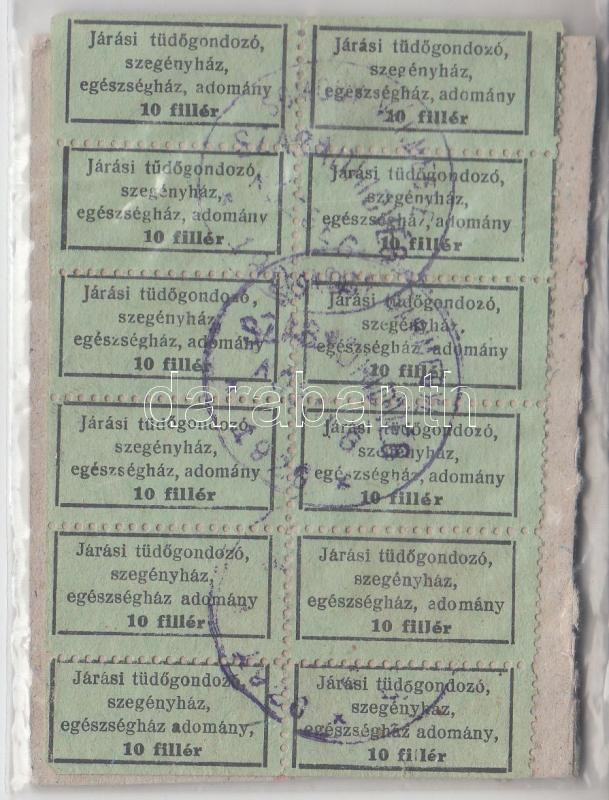 Járási tüdőgondozó,
szegényház,
egészségház, adomány
10 fillér
Járási tüdőgondozó,
szegényház,
egészségház, adomány
10 fillér
Járási tüdőgondozó,
szegényház,
egészségház, adomány
10 fillér
Járási tüdőgondozó,
szegényház,
egészségház, adomány
10 fillér
Járási tüdőgondozó,
szegényház,
egészségház, adomány
10 fillér
Járási tüdőgondozó,
szegényház,
egészségház, adomány
10 fillér
Járási tüdőgondozó,
szegényház,
egészségház, adomány
10 fillér
Járási tüdőgondozó,
szegényház,
egészségház, adomány
10 fillér
Járási tüdőgondozó,
szegényház,
egészségház adomány
10 fillér
Járási tüdőgondozó,
szegényház,
egészségház, adomány
10 fillér
Járási tüdőgondozó,
szegényház,
egészségház adomány,
10 fillér
Járási tüdőgondozó,
szegényház,
egészségház adomány
10 fillér
darabanth